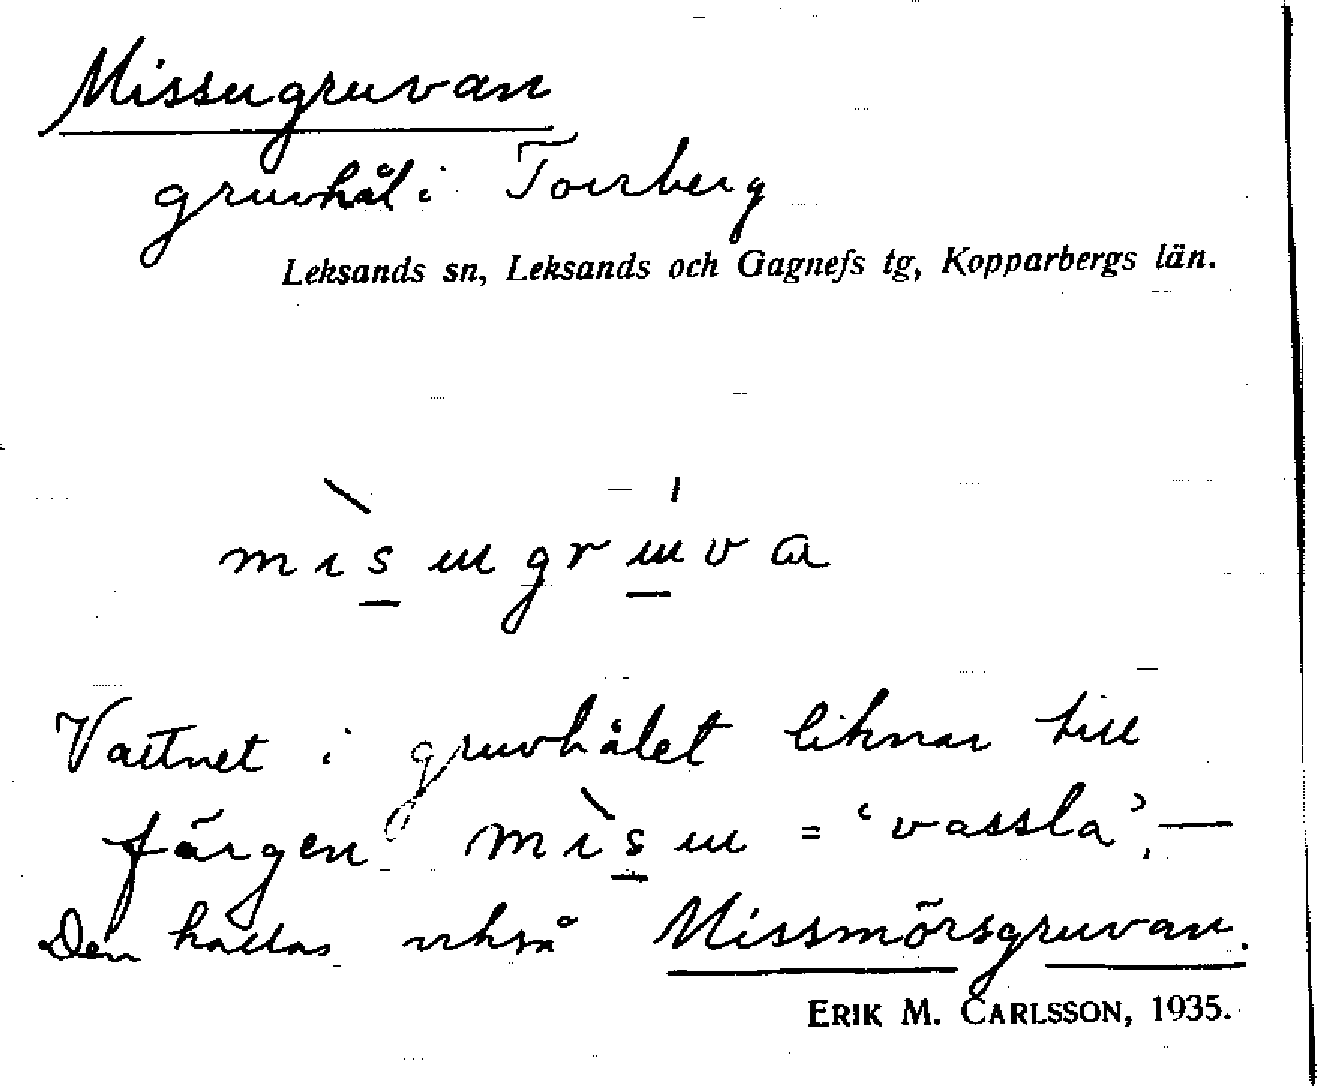 Missugruvan
gruvhål i Torrberg
Leksands sn, Leksands och Gagnefs tg, Kopparbergs län.
mìsugrúva
Vattnet i gruvhålet liknar till
färgen mìsu = ‘vassla’, —
Den kallas också Missmörsgruvan.
ERIK M. CARLSSON, 1935.